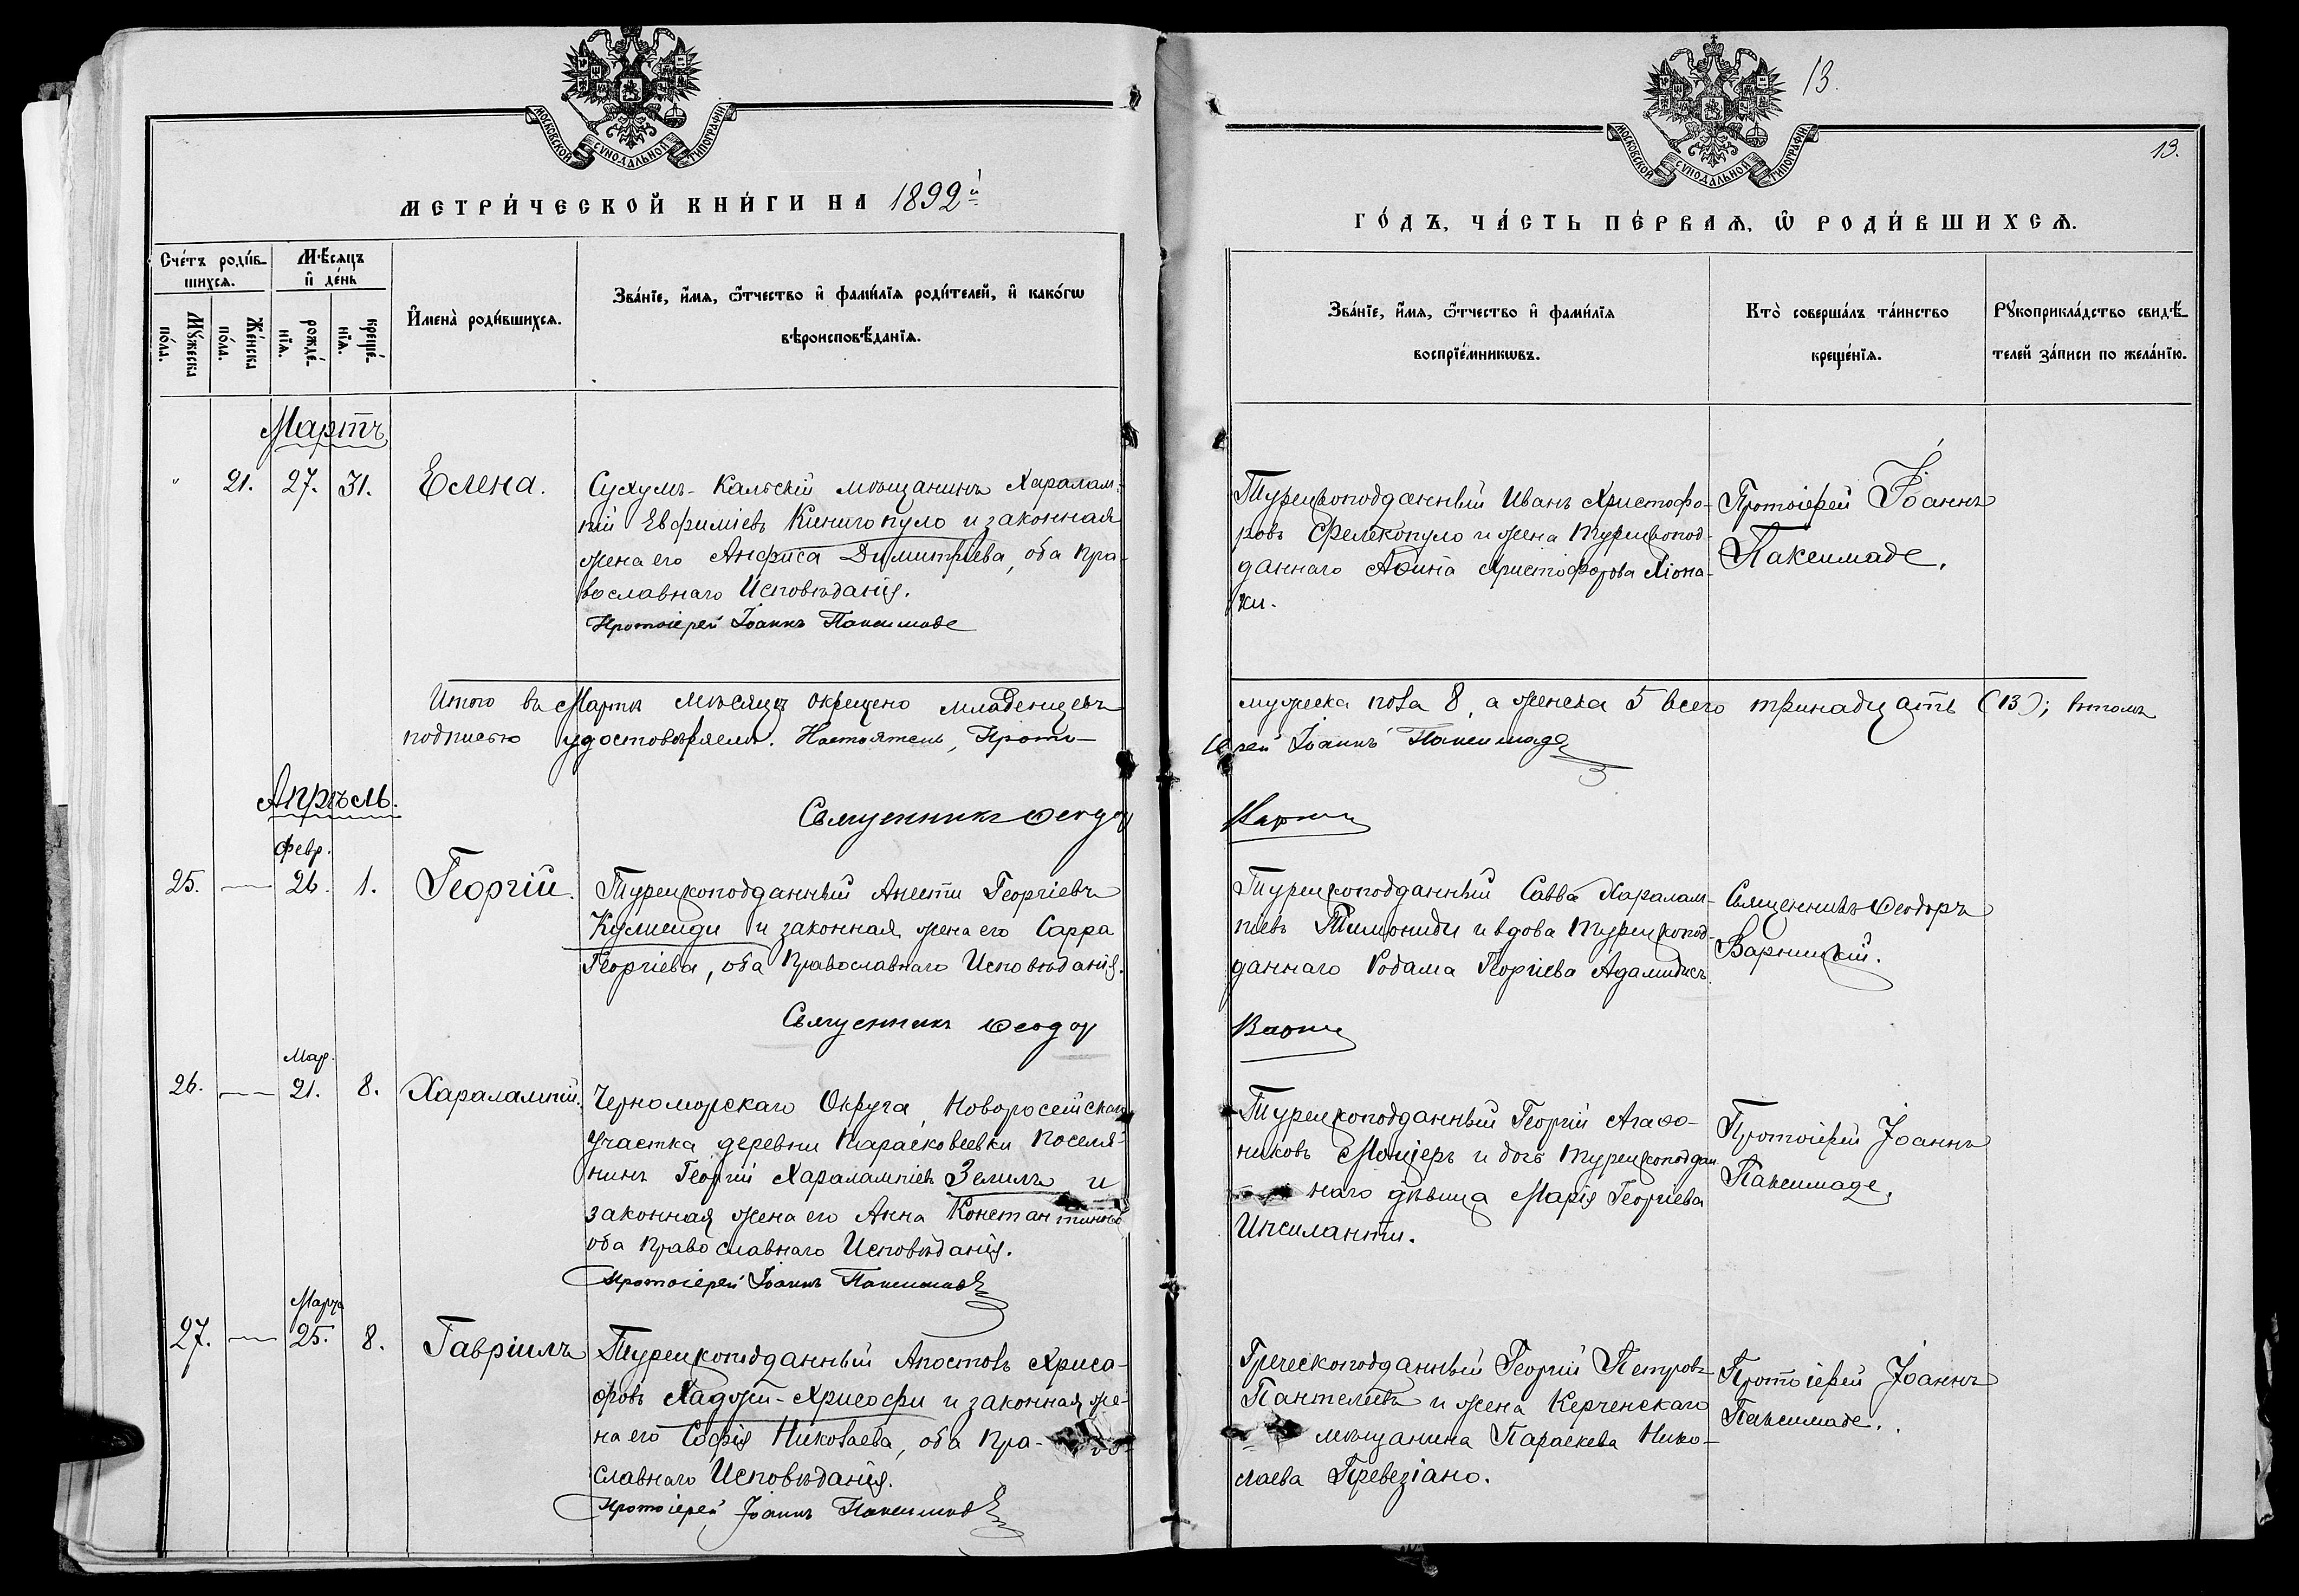 МОСКОВСКОЙ СѴНОДАЛЬНОЙ ТИПОГРАФІИ
МЕТРИ́ЧЕСКОЙ КНИ́ГИ НА 1892й
Сче́тъ роди́в-
шихсѧ.
Мѣ́сѧцъ
и҆ де́нь
Мꙋ́жеска
по́ла.
Же́нска
по́ла.
рожде́-
нїѧ.
креще́-
нїѧ.
И҆мена̀ роди́вшихсѧ.
Зва́нїе, и҆́мѧ, ѻ҆́тчество и҆ фами́лїѧ роди́телей, и҆ како́гѡ
вѣроисповѣ́данїѧ.
Мартъ
" 21. 27. 31. Елена.
Сухумъ-Кальскій мѣщанинъ Харалам-
пій Евфиміевъ Кинигопуло и законная
жена его Анфиса Димитріева, оба пра-
вославнаго Исповѣданія.
Протоіерей Іоаннъ Паксимаде
Итого въ Мартѣ мѣсяцѣ окрещено младенцевъ
подписью удостовѣряемъ. Настоятель, Прото-
Апрѣль.
Священникъ Ѳеодоръ
Февр.
25. — 26. 1. Георгій.
Турецкоподданный Анести Георгіевъ
и законная жена его Сарра
Георгіева, оба Православнаго Исповѣданія.
Священникъ Ѳеодоръ
Мар.
26. — 21. 8. Харалампій.
Черноморскаго Округа, Новоросейскаго
участка деревни Мараѳковеевки поселя-
нинъ Георгій Харалампіевъ Зелилъ и
законная жена его Анна Константинова
оба православнаго Исповѣданія.
Протоіерей Іоаннъ Паксимаде
Марта
27. — 25. 8. Гавріилъ
Турецкоподданный Апостолъ Хриса-
фовъ Хаджи-Хрисафи и законная же-
на его Софія Николаева, оба Пра-во-
славнаго Исповѣданія.
Протоіерей Іоаннъ Паксимаде
13.
МОСКОВСКОЙ СѴНОДАЛЬНОЙ ТИПОГРАФІИ
13.
ГО́ДЪ, ЧА́СТЬ ПЕ́РВАѦ, Ѡ҆ РОДИ́ВШИХСѦ.
Зва́нїе, и҆́мѧ, ѻ҆́тчество и҆ фами́лїѧ
воспрїе́мникѡвъ.
Кто̀ соверша́лъ та́инство
креще́нїѧ.
Рꙋкоприкла́дство свидѣ́-
телей за́писи по жела́нїю.
Турецкоподданный Иванъ Христофо-
ровъ Фелекопуло и жена турецкопод-
даннаго Аѳина Христофорова Ліона-
ки.
Протоіерей Іоаннъ
Паксимаде.
мужеска пола 8, а женска 5 всего тринадцать (13); в томъ
іерей Іоаннъ Паксимаде
Турецкоподданный Савва Харалам-
піевъ Тимониди и вдова турецкопод-
даннаго Родама Георгіева Адамидисъ.
Священникъ Ѳеодоръ
Варницкій.
Турецкоподданный Георгій Агаѳо-
никовъ и дочь турецкоподдан
наго дѣвица Марія Георгіева
Ипсиланти.
Протоіерей Іоаннъ
Паксимаде.
Греческоподданный Георгій Петровъ
Пантелиевъ и жена Керченскаго
мѣщанина Параскева Нико-
лаева Превезіано.
Протоіерей Іоаннъ
Паксимаде.